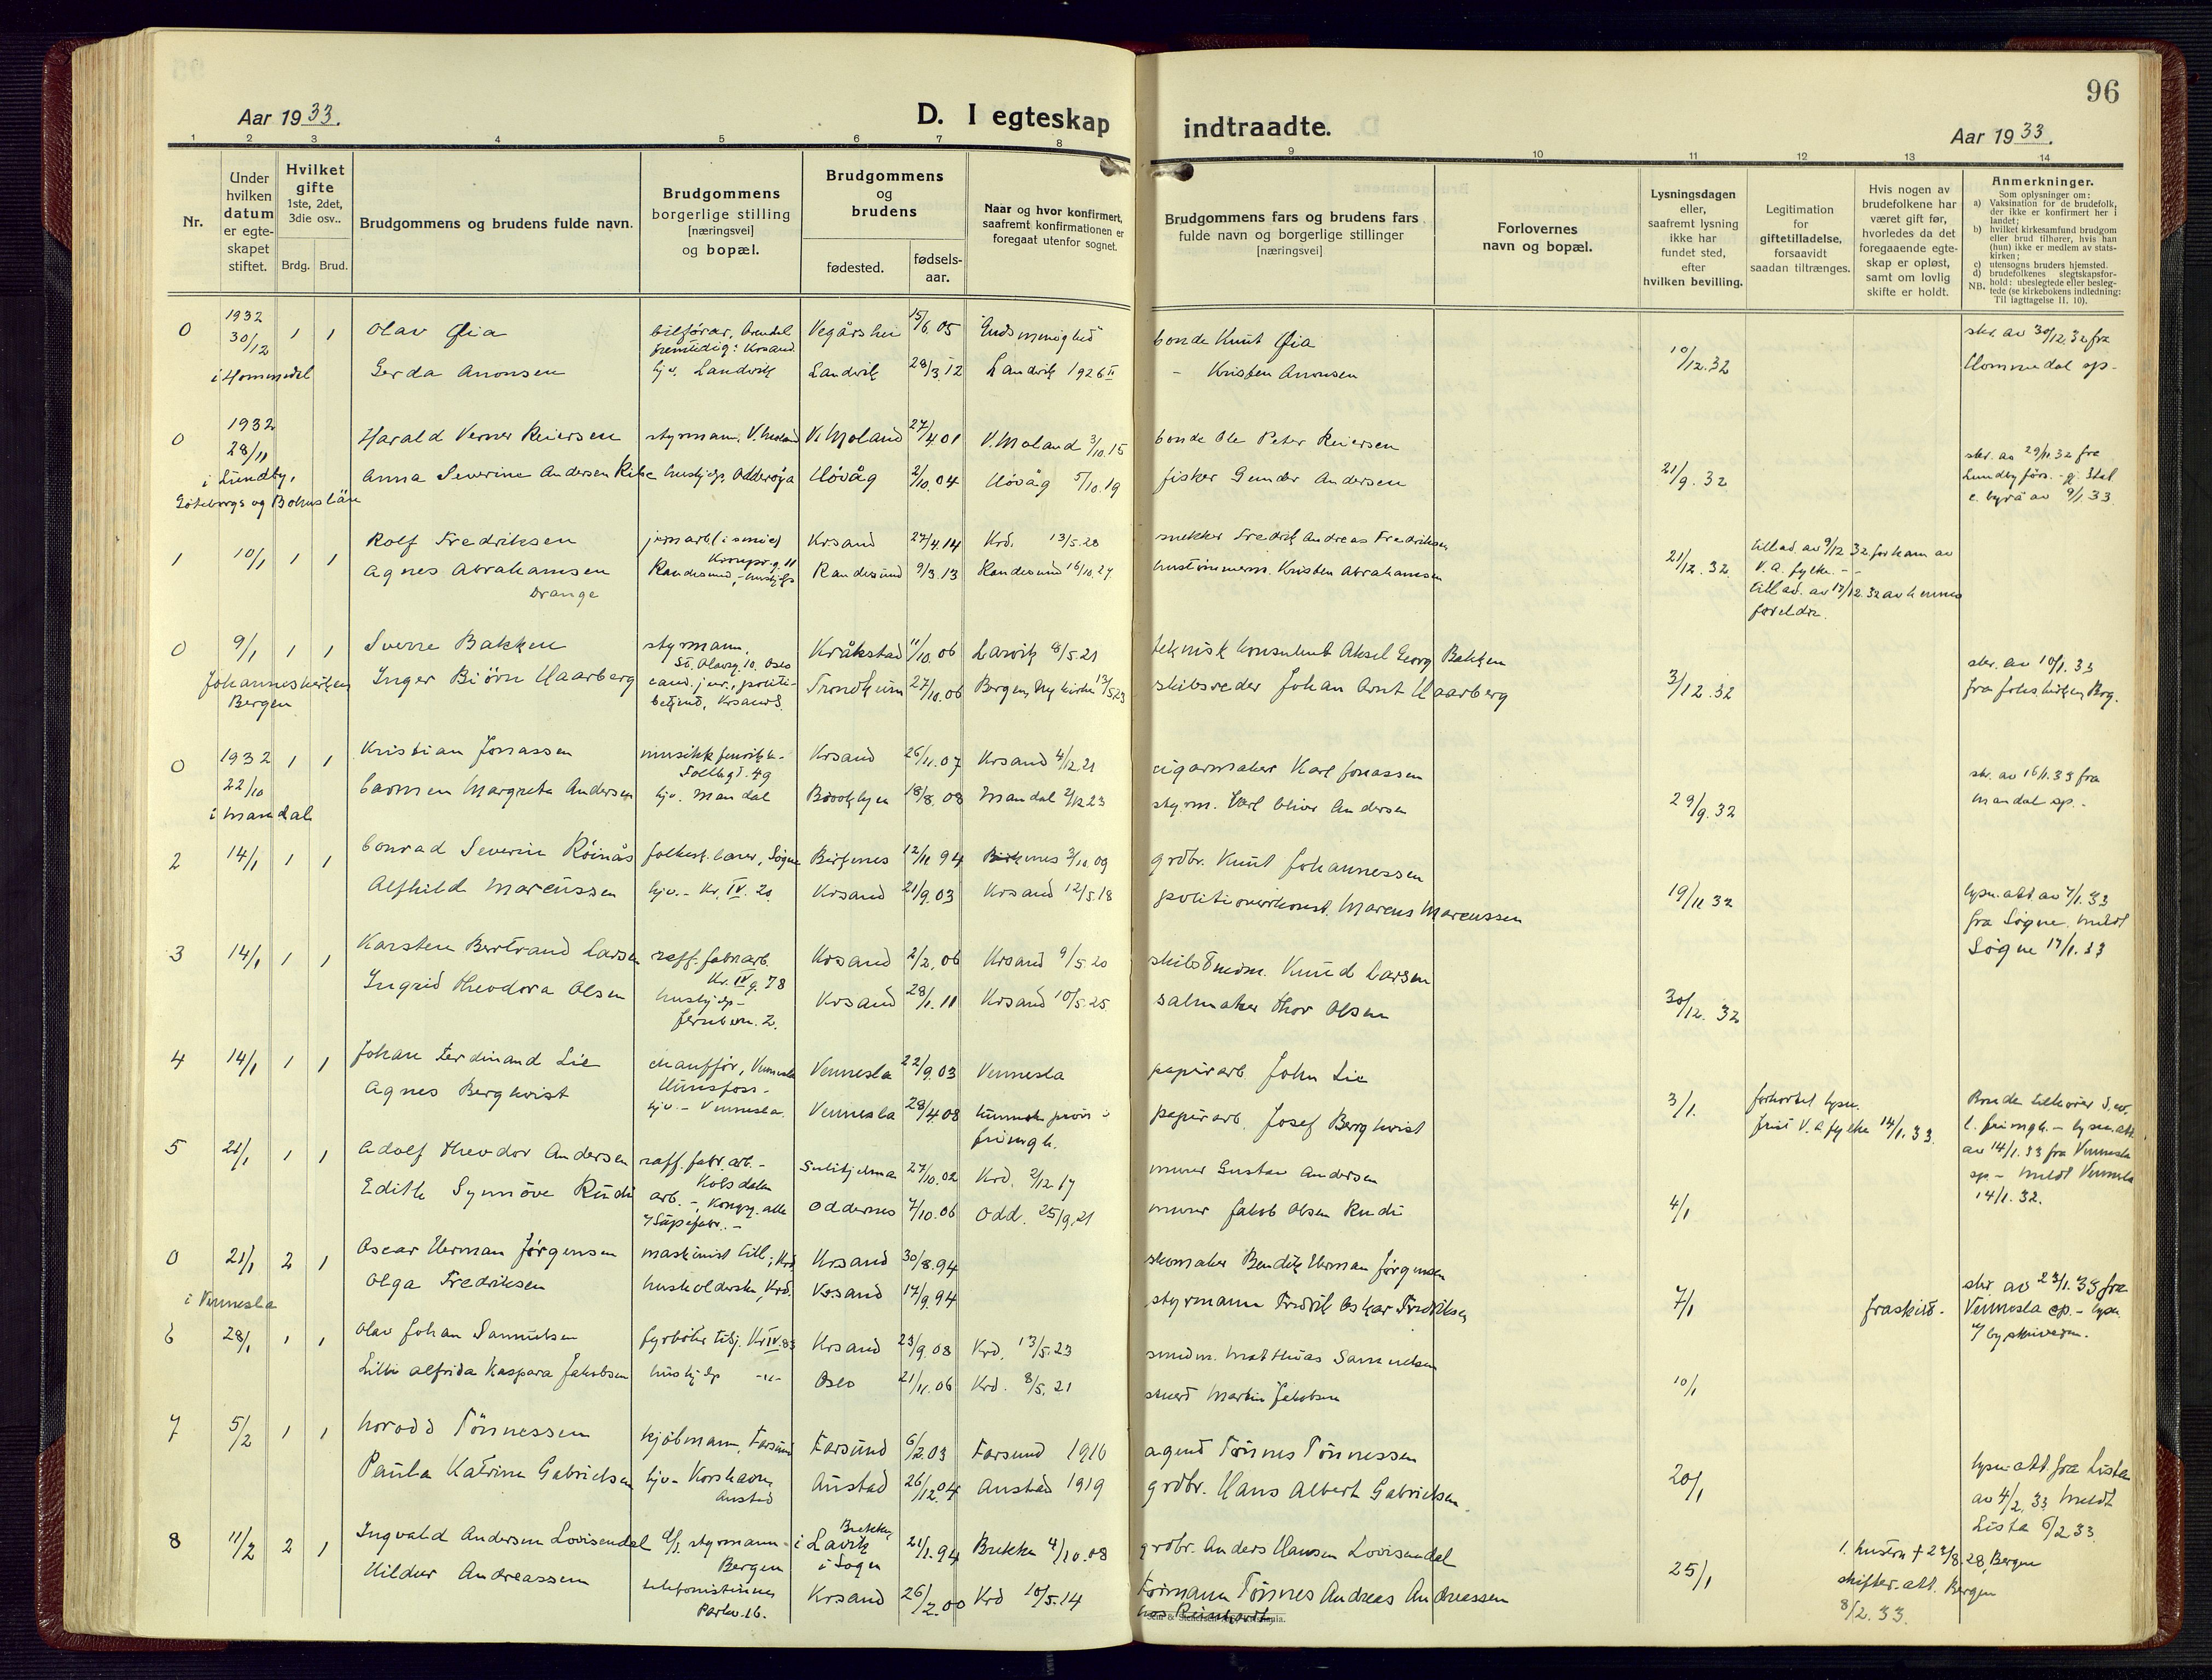 96
Aar 1933.
D. I egteskap indtraadte.
Aar 1933.
1 2 3 4 5 6 7 8 9 10 11 12 13 14
Nr.
Under hvilken datum er egteskapet stiftet.
Hvilket gifte 1ste, 2det, 3die osv..
Brdg. Brud.
Brudgommens og brudens fulde navn.
Brudgommens borgerlige stilling [næringsvei] og bopæl.
Brudgommens og brudens
fødested.
fødsels-aar.
Naar og hvor konfirmert, saafremt konfirmationen er foregaat utenfor sognet.
Brudgommens fars og brudens fars fulde navn og borgerlige stillinger [næringsvei]
Forlovernes navn og bopæl.
Lysningsdagen eller, saafremt lysning ikke har fundet sted, efter hvilken bevilling.
Legitimation for giftetilladelse, forsaavidt saadan tiltrænges.
Hvis nogen av brudefolkene har været gift før, hvorledes da det foregaaende egteskap er opløst, samt om lovlig skifte er holdt.
Anmerkninger.
Som oplysninger om:
a) Vaksination for de brudefolk, der ikke er konfirmert her i landet;
b) hvilket kirkesamfund brudgom eller brud tilhører, hvis han (hun) ikke er medlem av statskirken;
c) utensogns bruders hjemsted.
d) brudefolkenes slegtskapsforhold: ubeslegtede eller beslegtede (se kirkebokens indledning:
NB. Til iagttagelse II. 10).
0 1932 30/12 1 1 Olav Øia bilförar, Arendal Vegårshei 15/6.05 bonde Knut Øia skr. av 30/12.32 fra
fremtidig: Krsand.
i Hommedal Gerda Aronsen hjv. Landvik Landvik 28/3.12 Landvik 1926 - Kristen Aronsen 10/12.32 Hommedal sp.-
0 1932 28/11 Harald Verner Reiersen styrmann, V. Moland V. Moland 27/4.01 V. Moland 3/10.15 bonde Ole Peter Reiersen skr. av 29/11.32 fra
i Lundby, Anna Severine Andersen Ribe hushjelp. Odderøya Høvåg 2/10.04 Høvåg 5/10.19 fisker Gunder Andersen 21/9.32 Lundby förs.
Göteborgs og Bohuslän c. byrå av 9/1.33
1 10/1 1 1 Rolf Fredriksen jernarb. i smied Krsand 27/4.14 Krd. 13/5.28 snekker Fredrik Andreas Fredriksen 21/12.32 tillad. av 9/12 32 for ham av
Kronpr.g. 11 V. A. fylke. -
Agnes Abrahamsen Randesund, - hushjelp Randesund 9/3.13 Randesund 16/10.27 hustömmerm. Kristen Abrahamsen tillad. av 17/12.32 av hennes
Drange foreldre.
0 9/1 1 1 Sverre Bakken styrmann, Kråkstad 11/10.06 Larvik 8/5.21 teknisk konsulent Aksel Georg Bakken skr. av 10/1.33
St. Olavsg. 10, Oslo
Johanneskirken Inger Biörn Haarberg cand. jur., politi- Trondheim 27/10.06 Bergen, Ny kirke 13/5.23 skibsreder Johan Arnt Haarberg 3/12.32 fra Johs.kirken, Brg.
Bergen betjent, Krsand S.
0 1932 1 1 Kristian Jonassen Krsand 26/11.07 Krsand 4/12.21 cigarmaker Karl Jonassen skr. av 16/1.33 fra
22/10 Carmen Margreta Andersen hjv. Mandal Brooklyn 18/8.08 Mandal 2/12 23 styrm. Karl Oliver Andersen 29/9.32 Mandal sp.-
i Mandal
2 14/1 1 1 Conrad Severin Röinås folkesk. lærer, Søgne Birkenes 12/11 94 Birkenes 3/10.09 grdbr. Knut Johannessen
Alfhild Marcussen hjv. - Kr. IV. 20 Krsand 21/9.03 Krsand 12/5.18 politioverkonst. Marcus Marcussen 19/11 32 lysn.att. av 7/1.33
fra Søgne. Meldt
Søgne 17/1.33
3 14/1 1 1 Karsten Bertrand Larsen raff. fabr.arb. Krsand 2/2.06 Krsand 9/5.20 skibstömm. Knud Larsen
Kr. IV g. 78
Ingrid Theodora Olsen hushjelp- Krsand 28/1.11 Krsand 10/5.25 salmaker Thor Olsen 30/12.32
4 14/1 1 1 Johan Ferdinand Lie chauffør, Vennesla Vennesla 22/9.03 Vennesla papirarb. John Lie
Hunsfoss -
Agnes Bergkvist hjv. - Vennesla. Vennesla 28/4.08 frimgh. papirarb. Josef Bergkvist 3/1. forkortet lysn. Bruden tilhører d. ev.
frist V. A. fylke 14/1.33. l. frimgh. - lysn.att.
av 14/1.33 fra Vennesla
sp - Meldt Vennesla
14/1.32.
5 21/1 1 1 Adolf Theodor Andersen raff. fabr. arb. - Sulitjelma 27/10.02 Krd. 2/12.17 murer Gustav Andersen
Kolsdalen
Edith Synnöve Rudi arb. -, Kongsg. alle Oddernes 7/10.06 Odd. 25/9.21 murer Jakob Olsen Rudi 4/1
v/ Såpefabr. -
0 21/1 2 1 Oscar Herman Jörgensen maskinist till; Krd Krsand 30/8.94 skomaker Bendik Herman Jörgensen
i Vennesla Olga Fredriksen husholderske, Krd. Krsand 17/9.94 styrmann Fredrik Oskar Fredriksen 7/1 fraskilt. skr. av 23/1.33 fra
Vennesla sp. - lysn.
v/ byskriveren.
6 28/1 1 1 Olav Johan Samuelsen fyrböter tilsj. Kr IV.83 Krsand 23/9.08 Krd. 13/5.23 smedm. Matthias Samuelsen
Lilli Alfrida Kaspara Jakobsen hushjelp -"- Oslo 21/11.06 Krd. 8/5.21 stuert Martin Jakobsen 10/1
7 5/2 1 1 Norodd Tönnessen kjöbmann, Farsund Farsund 6/2.03 Farsund 1916 agent Tönnes Tönnessen
Paula Katrine Gabrielsen hjv- Korshavn, Austad 26/12.04 Austad 1919 grdbr. Hans Albert Gabrielsen. 20/1 lysn.att fra Lista
Austad av 4/2.33. Meldt
Lista 6/2.33.
8 11/2 2 1 Ingvald Andersen Lovisendal styrmann- Brekke, i Lavik i Sogn 21/1.94 Brekke 4/10.08 grdbr. Anders Hansen Lovisendal 1. hustru † 23/8.28, Bergen
Bergen
Hildur Andreassen telefonistinne Krsand 26/2.00 Krd 10/5.14 formann Tönnes Andreas Andreassen 25/1 skifter.att. Bergen
Parkv. 16. 8/2.33.